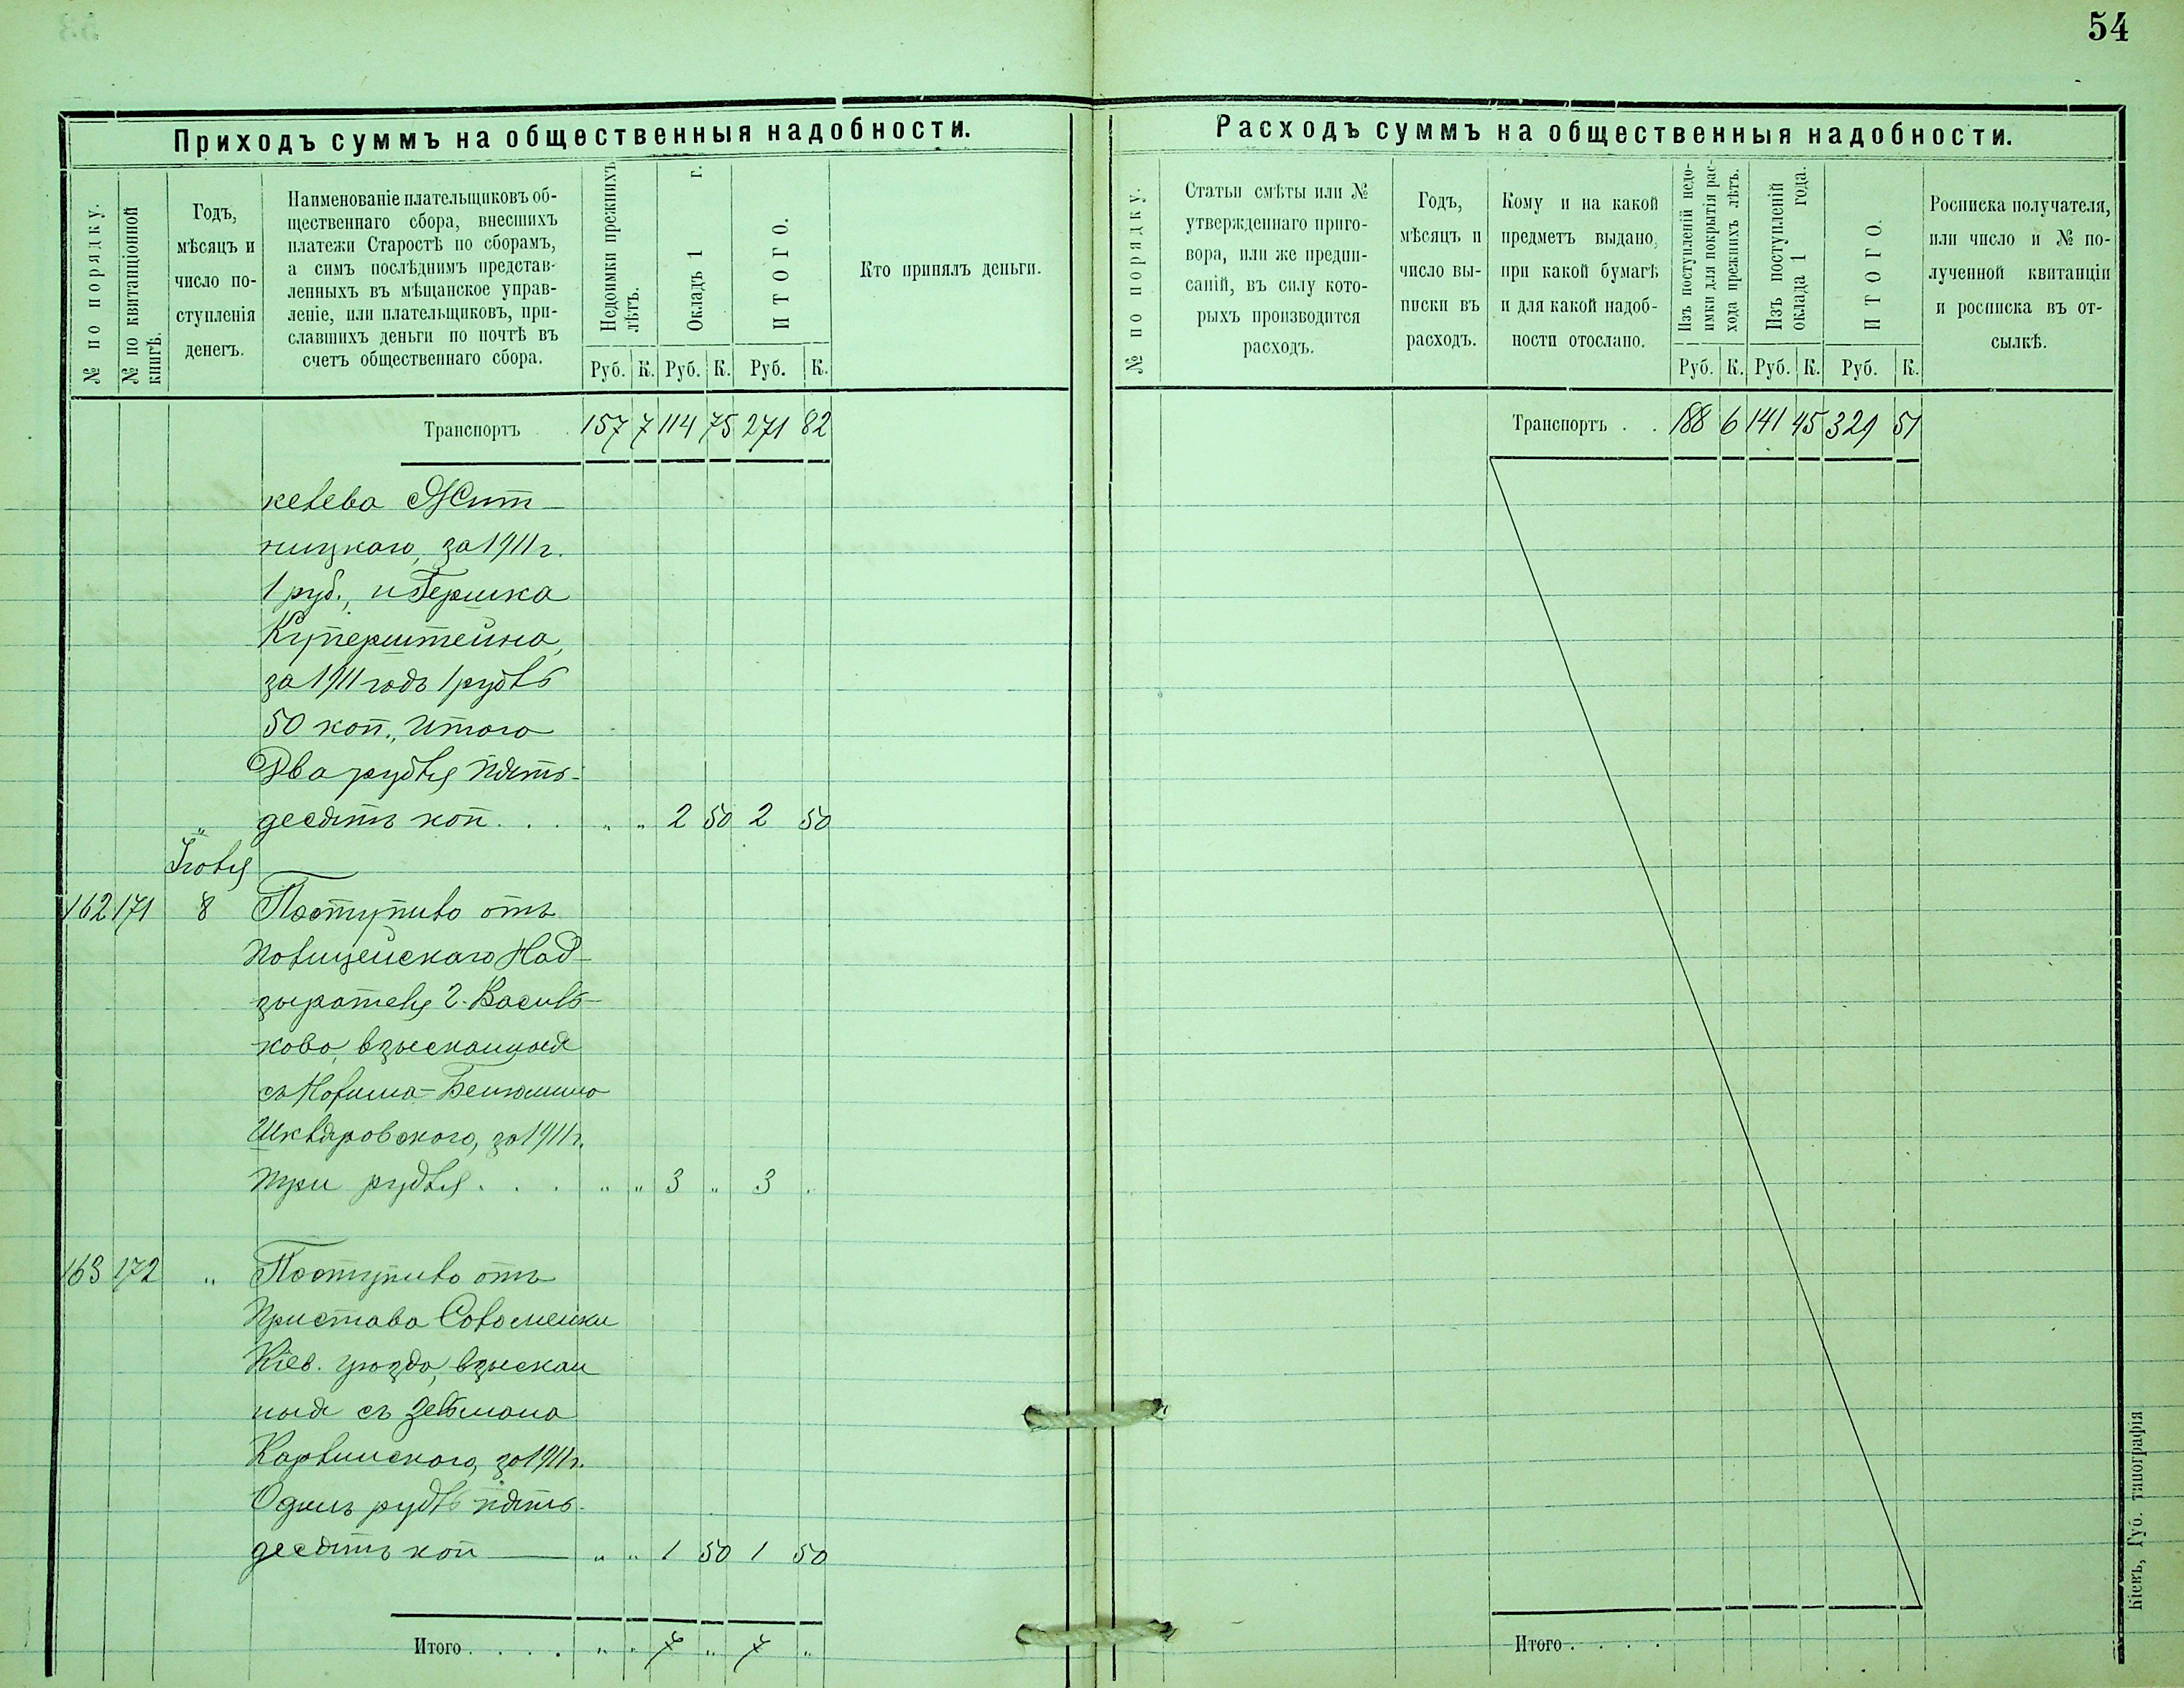 54
Приходъ суммъ на общественныя надобности.
№ по порядку.
№ по квитанціонной
книгѣ.
Годъ,
мѣсяцъ и
число по-
ступленія
денегъ.
Наименованіе плательщиковъ об-
щественнаго сбора, внесшихъ
платежи Старостѣ по сборамъ,
а симъ послѣднимъ представ-
ленныхъ въ мѣщанское управ-
леніе, или плательщиковъ, при-
славшихъ деньги по почтѣ въ
счетъ общественнаго сбора.
Недоимки прежнихъ
лѣтъ.
Окладъ 1 г.
ИТОГО.
Руб. К. Руб. К. Руб. К.
Кто принялъ деньги.
Транспортъ 157 7 114 75 271 82
келева Жит-
ницкаго, за 1911 г.
1 руб., и Гершка
Куперштейна,
за 1911 годъ 1 рубль
50 коп., Итого
Два рубля пять-
десятъ коп. . . „ „ 2 50 2 50
„
Іюля
162 171 8 Поступило отъ
Полицейскаго Над-
зирателя г. Василь-
кова, взысканныя
съ Бенюмина
Шкляровского, за 1911 г.
три рубля . . . „ „ 3 „ 3 .
163 172 „ Поступило отъ
Пристава Соломенки
Кіев. уѣзда, взыскан
ныя съ Зельмана
Карлинского, за 1911 г.
Одинъ рубль пять-
десятъ коп — „ „ 1 50 1 50
Итого. . . . „ „ 7 „ 7 „
Расходъ суммъ на общественныя надобности.
№ по порядку.
Статьи смѣты или №
утвержденнаго приго-
вора, или же предпи-
саній, въ силу кото-
рыхъ производится
расходъ.
Годъ,
мѣсяцъ и
число вы-
писки въ
расходъ.
Кому и на какой
предметъ выдано,
при какой бумагѣ
и для какой надоб-
ности отослано.
Изъ поступленій недо-
имки для покрытія рас-
хода прежнихъ лѣтъ.
Изъ поступленій
оклада 1 года.
ИТОГО.
Руб. К. Руб. К. Руб. К.
Росписка получателя,
или число и № по-
лученной квитанціи
и росписка въ от-
сылкѣ.
Транспортъ . . 188 6 141 45 329 51
Итого . . . .
Кіевъ, Губ. типографія